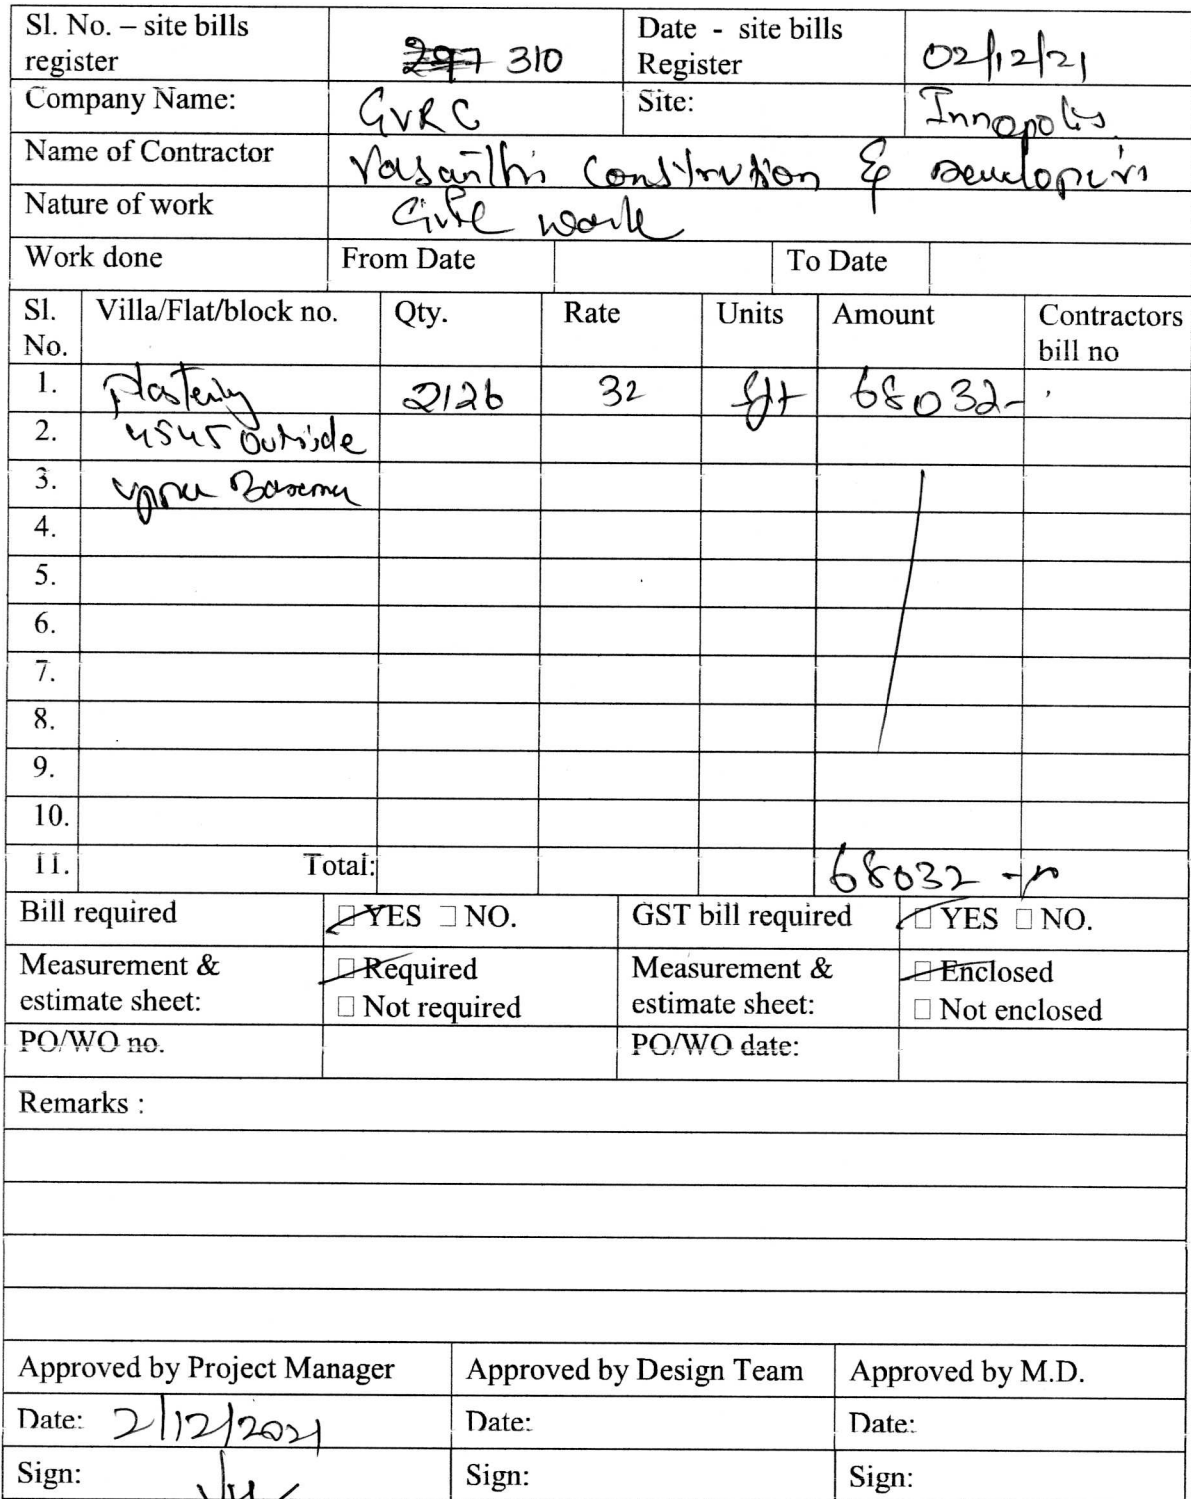 Sl. No. – site bills register 297 310 Date - site bills Register 02/12/21
Company Name: GVRC Site: Innopolis
Name of Contractor Vasanthi Constrution & Developers
Nature of work Civil work
Work done From Date To Date
Sl. No. Villa/Flat/block no. Qty. Rate Units Amount Contractors bill no
1. plastering 2126 32 sft 68032-
2. 4545 outside
3. upper
4.
5.
6.
7.
8.
9.
10.
11. Total: 68032
Bill required □ YES □ NO. GST bill required □ YES □ NO.
Measurement & estimate sheet: □ Required □ Not required Measurement & estimate sheet: □ Enclosed □ Not enclosed
PO/WO no. PO/WO date:
Remarks :
Approved by Project Manager Approved by Design Team Approved by M.D.
Date: 2/12/2021 Date: Date:
Sign: Sign: Sign: